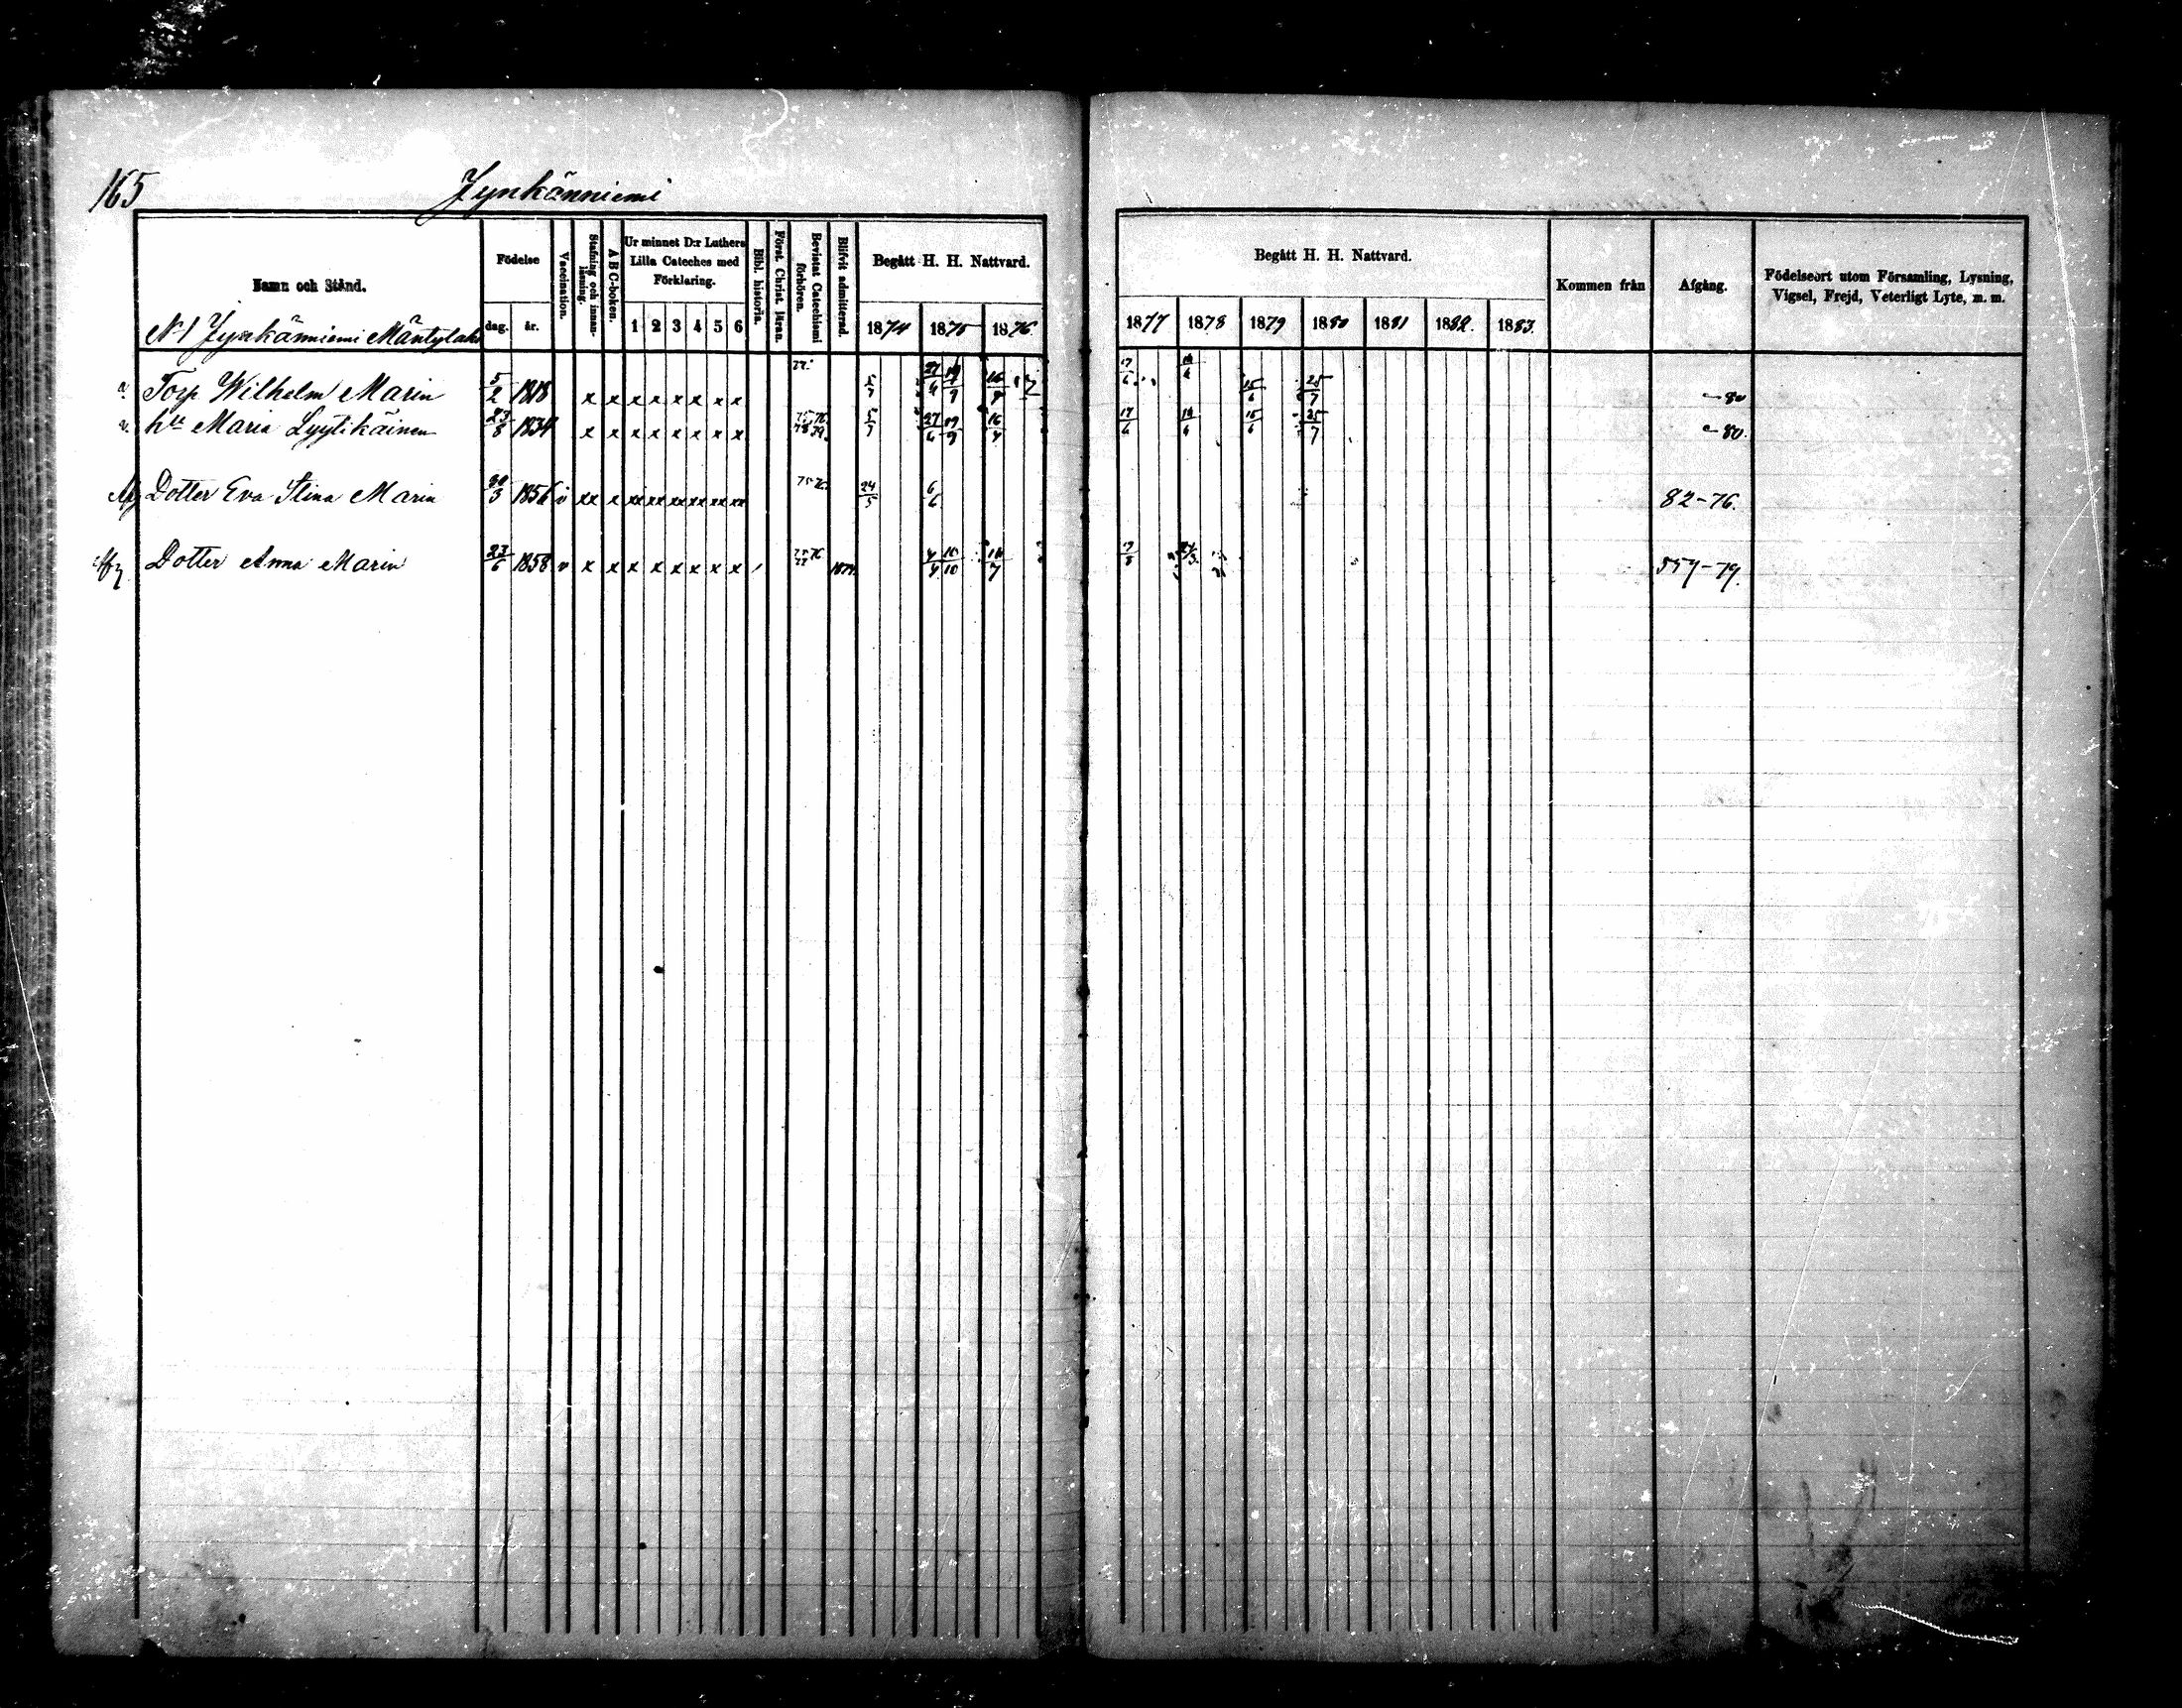 165
Jynkänniemi
Namn och Stånd.
Födelse
dag.
år.
Vaccination.
Stafning och innan-läsning.
A B C-boken.
Ur minnet D:r Luthers Lilla Cateches med Förklaring.
1 2 3 4 5 6
Bibl. historia.
Först. Christ. läran.
Bevistat Catechismi förhören.
Blifvit admitterad.
Begått H. H. Nattvard.
1874 1875 1876
Begått H. H. Nattvard.
1877 1878 1879 1880 1881 1882. 1883.
Kommen från
Afgång.
Födelseort utom Församling, Lysning, Vigsel, Frejd, Veterligt Lyte, m. m.
N 1 Jynkänniemi Mäntylaks
v. Torp Wilhelm Marin 5/2 1818 x x x x x x x x 27/6 19/9 16/7 17/6 16/6 15/6 25/7 – 80
v. h:u Maria Lyytikäinen 23/8 1834 x x x x x x x x 75 76 78 79 5/7 27/6 19/9 16/7 17/6 16/6 15/6 25/7 – 80.
Dotter Eva Stina Marin 30/3 1856 v xx x xx xx xx xx xx xx 75 76 24/5 6/6 82–76.
Dotter Anna Marin 23/6 1858 v x x x x x x x x 1874 4/4 10/10 16/7 557–79.